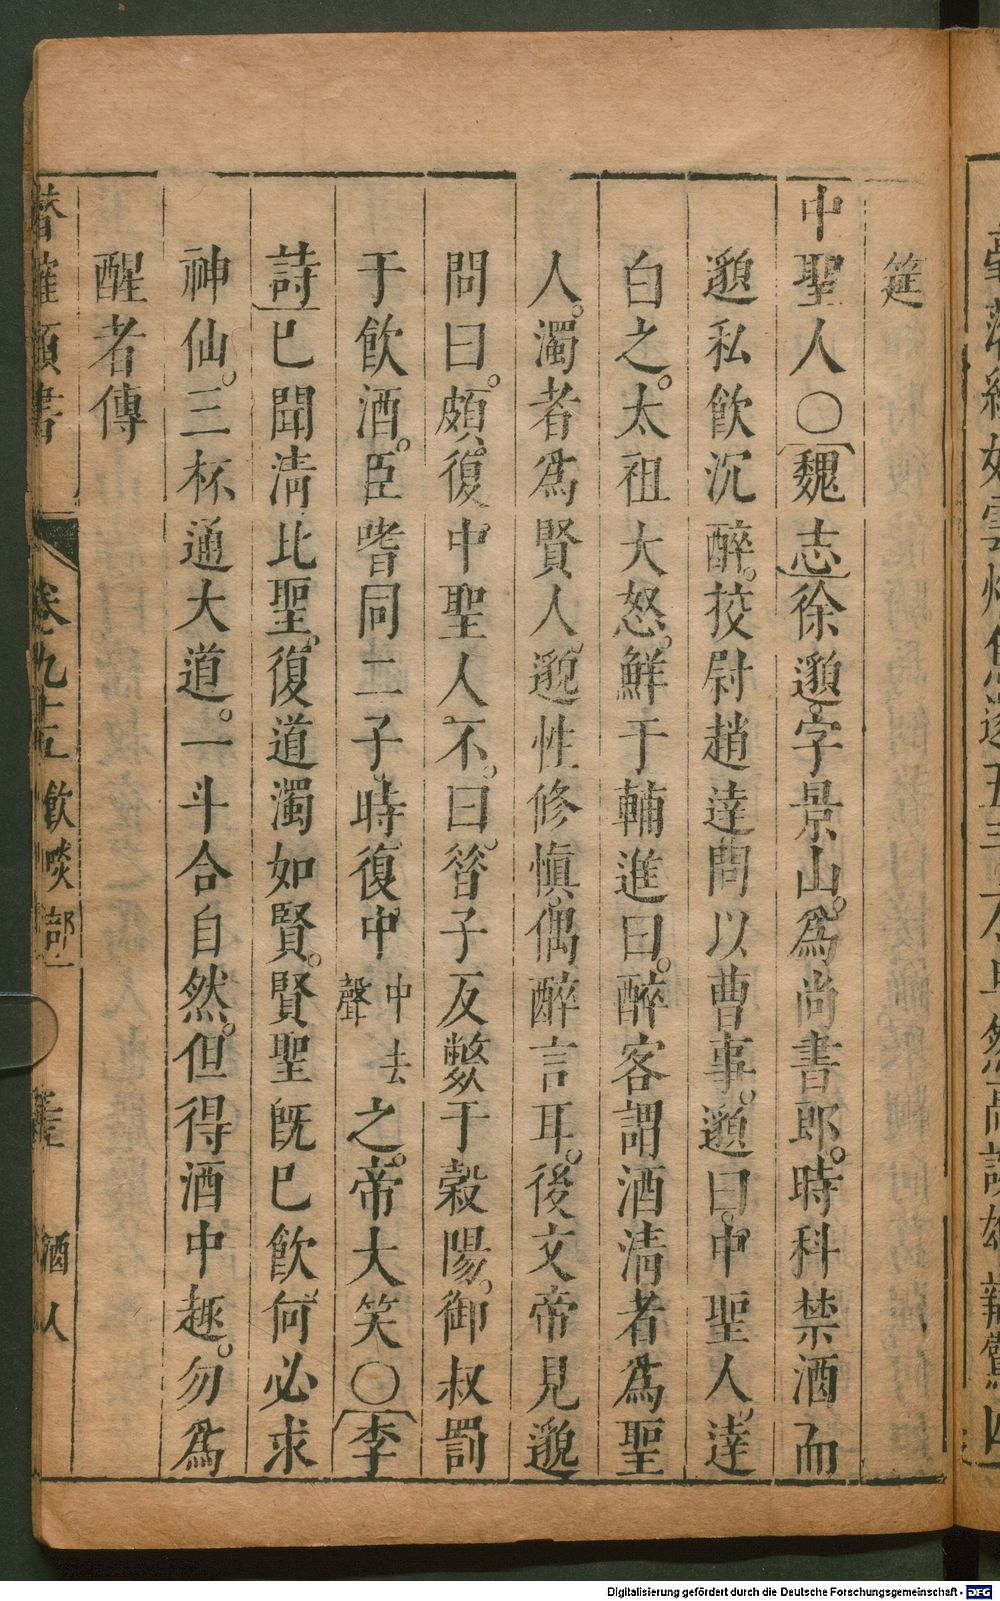 筵
中聖人〇魏志徐邈字景山。爲尚書郎。時科禁酒而
邈私飲沉醉。挍尉趙達問以曹事。邈曰。中聖人。達
白之。太祖大怒。鮮于輔進曰。醉客謂酒淸者爲聖
人。濁者爲賢人。邈性修愼。偶醉言耳。後文帝見邈
問曰。頗復中聖人不。曰。昝子反斃于榖陽。御叔罰
于飲酒。臣嗜同二子。時復中中去聲之。帝大笑〇李
詩已聞淸比聖。復道濁如賢。賢聖旣已飲。何必求
神仙。三杯通大道。一斗合自然。但得酒中趣。勿爲
醒者傳
潛確類書 卷九十五 飲啖部二 酒人
Digitalisierung gefördert durch die Deutsche Forschungsgemeinschaft - DFG